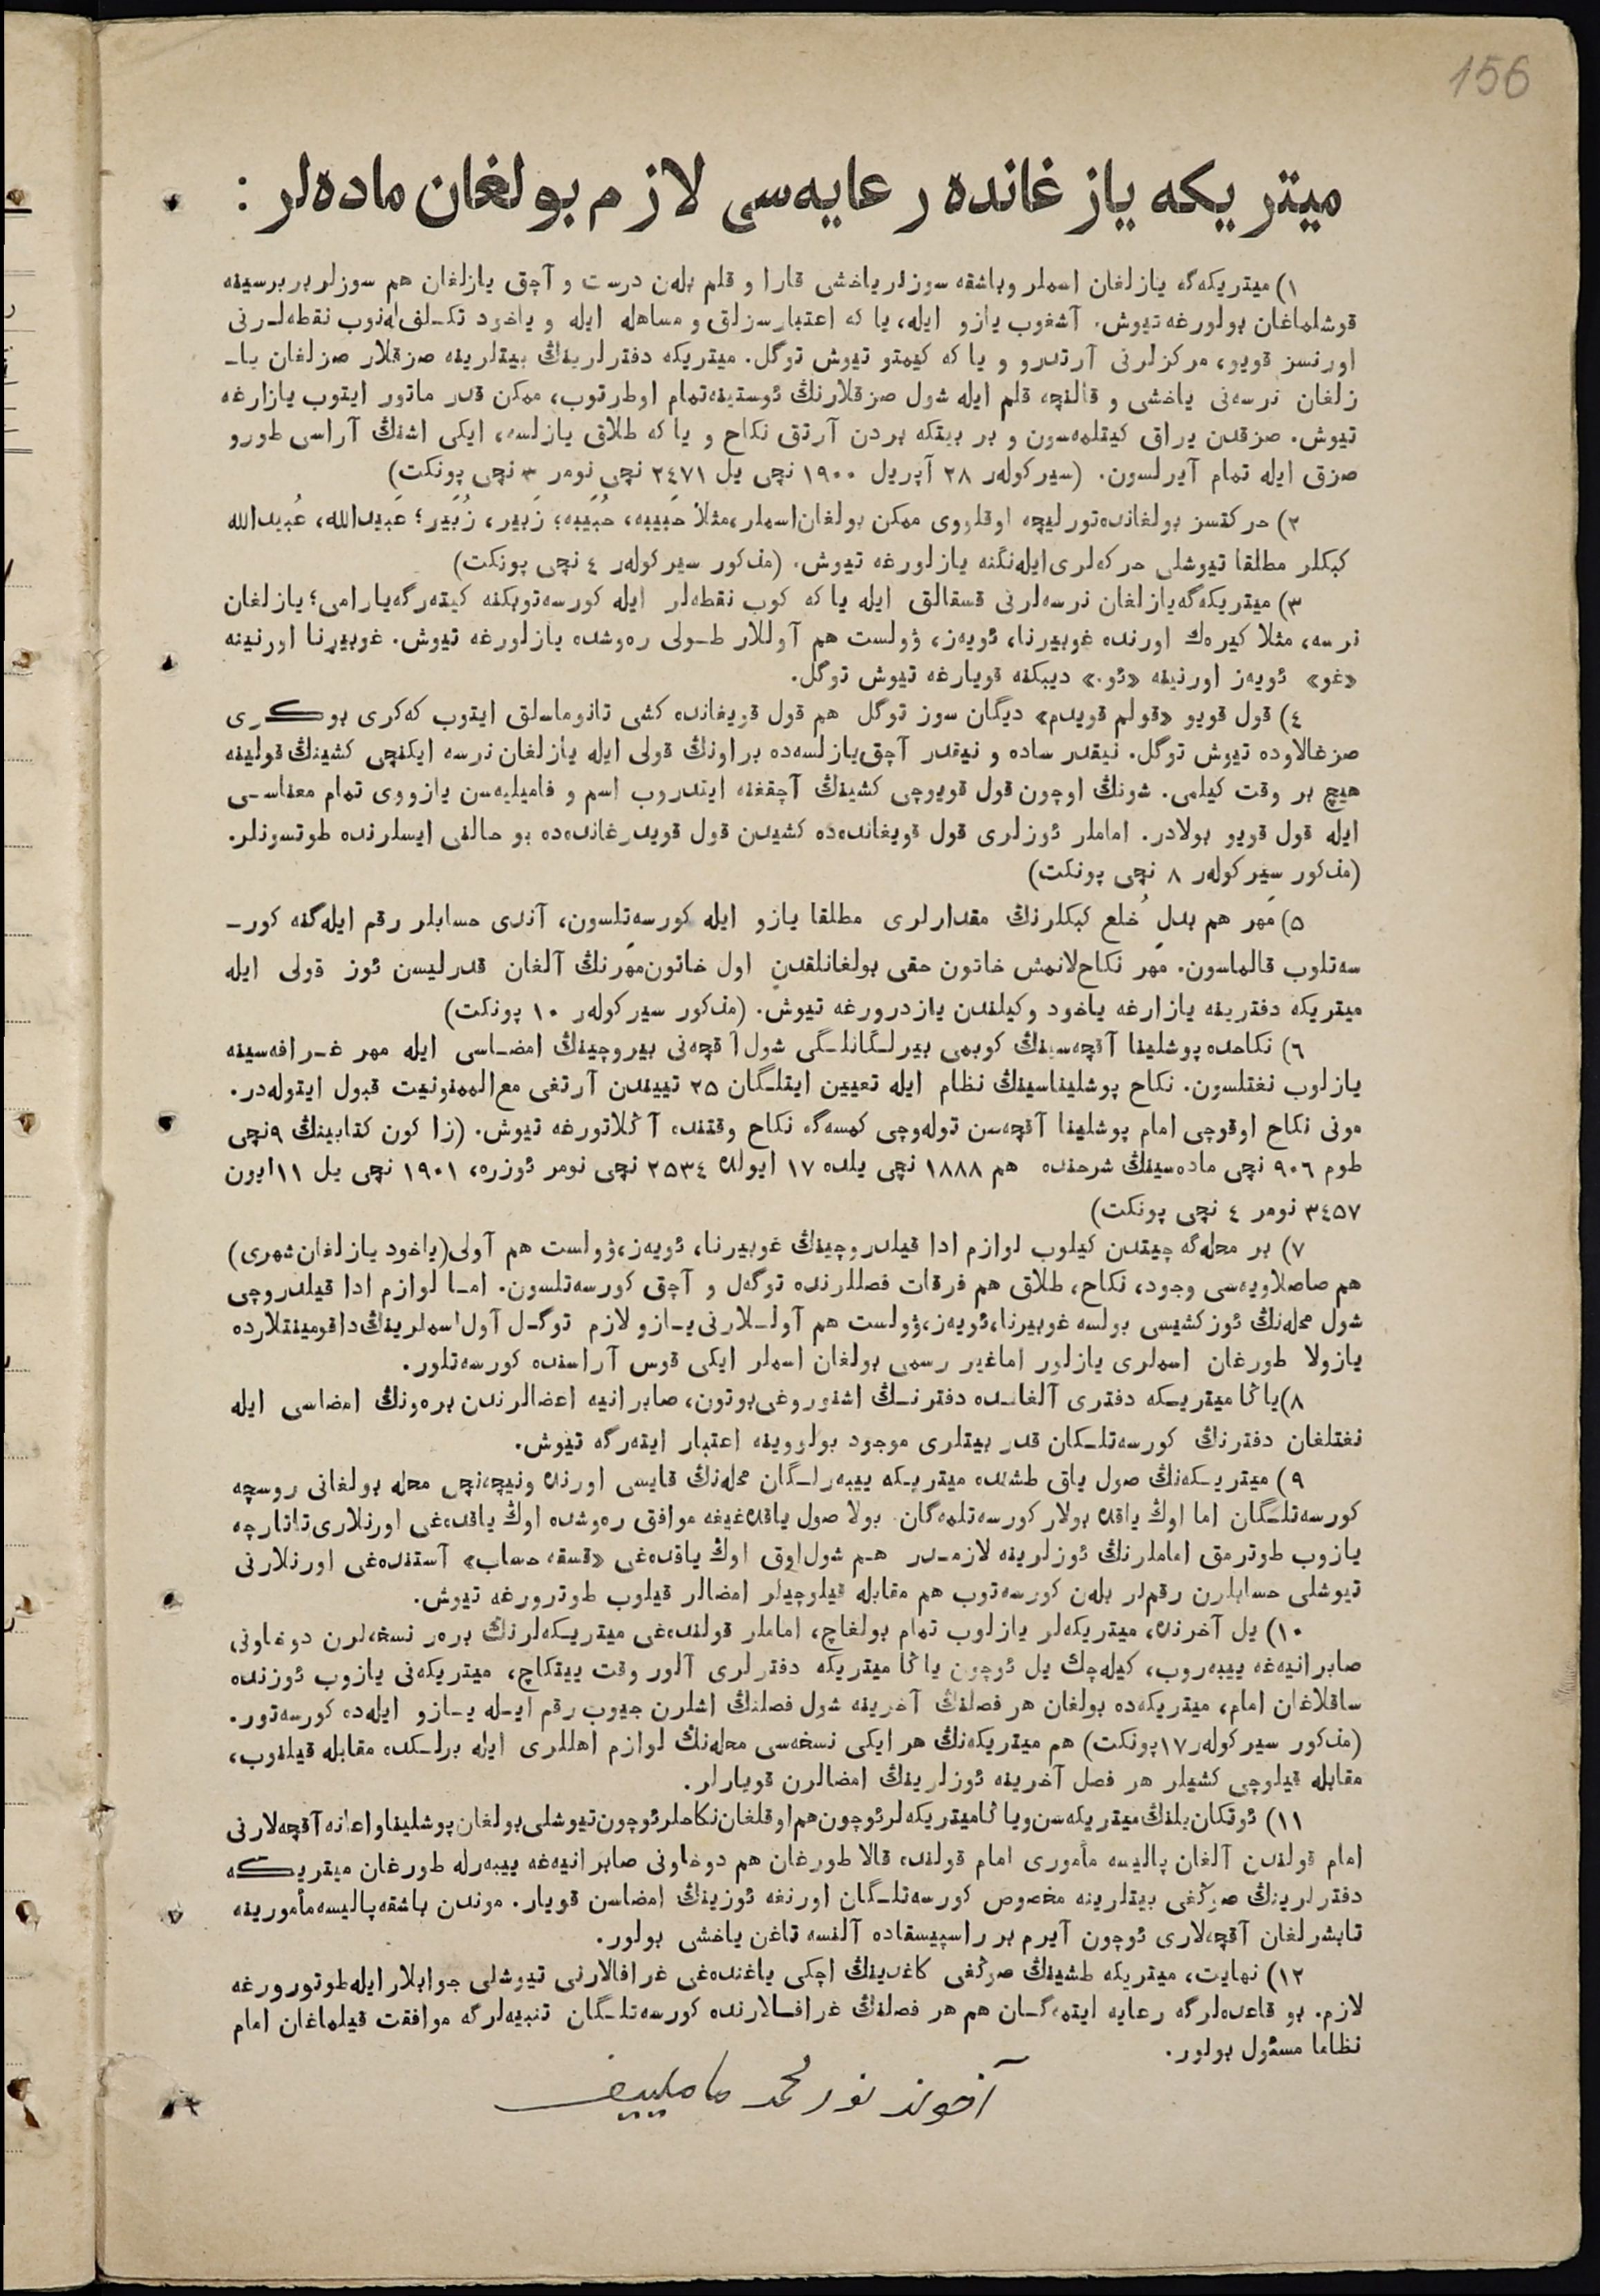 156
میتریكه یازغانده رعایه‌سی لازم بولغان ماده‌لر :
١) میتریكه‌گه یازلغان اسملر وباشقه سوزلر یاخشی قارا و قلم بله‌ن درست و آچق یازلغان هم سوزلر بربرسینه
قوشلماغان بولورغه تیوش. آشغوب یازو ایله، یا كه اعتبارسزلق و مساهله ایله و یاخود تكـلف له‌نوب نقطه‌لـرنی
اورنسز قویو، مركزلرنی آرتدرو و یا كه كیمتو تیوش توگل. میتریكه دفترلرینڭ بیتلرینه صزقلار صزلغان یا-
زلغان نرسه‌نی یاخشی و قالنچه قلم ایله شول صزقلارنڭ ئوستینه تمام اوطرتوب، ممكن قدر ماتور ایتوب یازارغه
تیوش. صزقدن یراق كیتلمه‌سون و بر بیتكه بردن آرتق نكاح و یا كه طلاق یازلسه، ایكی اشنڭ آراسی طورو
صزق ایله تمام آیرلسون. (سیركوله‌ر ٢٨ آپریل ١٩٠٠ نچی یل ٢٤٧١ نچی نومر ٣ نچی پونكت)
٢) حركتسز بولغانده تورلیچه اوقلووی ممكن بولغان اسملر، مثلا حَبیبه، حُبَیبه؛ زَبیر، زُبَیر؛ عَبیدالله، عُبیدالله
كبكلر مطلقا تیوشلی حركه‌لری ایله‌نگنه یازلورغه تیوش. (مذكور سیركوله‌ر ٤ نچی پونكت)
٣) میتریكه‌گه یازلغان نرسه‌لرنی قسقالق ایله یا كه كوب نقطه‌لر ایله كورسه‌توبكنه كیته‌رگه یارامی؛ یازلغان
نرسه، مثلا كیره‌ك اورنده غوبیرنا، ئویه‌ز، ۋولست هم آوللار طـولی ره‌وشده یازلورغه تیوش. غوبیرنا اورنینه
«غو» ئویه‌ز اورنینه «ئو.» دیبكنه قویارغه تیوش توگل.
٤) قول قویو «قولم قویدم» دیگان سوز توگل هم قول قویغانده كشی تانوماسلق ایتوب كه‌كری بوكری
صزغالاوده تیوش توگل. نیقدر ساده و نیقدر آچق یازلسه‌ده براونڭ قولی ایله یازلغان نرسه ایكنچی كشینڭ قولینه
هیچ بر وقت كیلمی. شونڭ اوچون قول قویوچی كشینڭ آچقغنه ایتدروب اسم و فامیلیه‌سن یازووی تمام معناسـی
ایله قول قویو بولادر. اماملر ئوزلری قول قویغانده‌ده كشیدن قول قویدرغانده‌ده بو حالنی ایسلرنده طوتسونلر.
(مذكور سیركوله‌ر ٨ نچی پونكت)
٥) مَهر هم بدلِ خُلع كبكلرنڭ مقدارلری مطلقا یازو ایله كورسه‌تلسون، آندی حسابلر رقم ایله گنه كور-
سه‌تلوب قالماسون. مَهر نكاحلانمش خاتون حقی بولغانلقدن اول خاتون مَهرنڭ آلغان قدرلیسن ئوز قولی ایله
میتریكه دفترینه یازارغه یاخود وكیلندن یازدرورغه تیوش. (مذكور سیركوله‌ر ١٠ پونكت)
٦) نكاحده پوشلینا آقچه‌سینڭ كوبمی بیرلـگانلـگی شول آقچه‌نی بیروچینڭ امضـاسی ایله مهر غـرافه‌سینه
یازلوب نغتلسون. نكاح پوشلیناسینڭ نظام ایله تعیین ایتلـگان ٢٥ تییندن آرتغی مع‌الممنونیت قبول ایتوله‌در.
مونی نكاح اوقوچی امام پوشلینا آقچه‌سن توله‌وچی كمسه‌گه نكاح وقتنده آڭلاتورغه تیوش. (زاكون كتابینڭ ٩نچی
طوم ٩٠٦ نچی ماده‌سینڭ شرحنده هم ١٨٨٨ نچی یلده ١٧ ایولده ٢٥٣٤ نچی نومر ئوزره، ١٩٠١ نچی یل ١١ ایون
٣٤٥٧ نومر ٤ نچی پونكت)
٧) بر محله‌گه چیتدن كیلوب لوازم ادا قیلدروچینڭ غوبیرنا، ئویه‌ز، ۋولست هم آولی (یاخود یازلغان شهری)
هم صاصلاویه‌سی وجود، نكاح، طلاق هم فرقات فصللرنده توگه‌ل و آچق كورسه‌تلسون. امـا لوازم ادا قیلدروچی
شول محله‌نڭ ئوز كشیسی بولسه غوبیرنا، ئویه‌ز، ۋولست هم آولـلارنی یـازو لازم توگـل آول اسملرینڭ داقومینتلارده
یازولا طورغان اسملری یازلور اماغیر رسمی بولغان اسملر ایكی قوس آراسنده كورسه‌تلور.
٨) یاڭا میتریـكه دفتری آلغاـنده دفترنـڭ اشنوروغی بوتون، صابرانیه اعضالرندن بره‌ونڭ امضاسی ایله
نغتلغان دفترنڭ كورسه‌تلـكان قدر بیتلری موجود بولووینه اعتبار ایته‌رگه تیوش.
٩) میتریـكه‌نڭ صول یاق طشنده میتریـكه ییبه‌رلـگان محله‌نڭ قایسی اورنده ونیچه‌نچی محله بولغانی روسچه
كورسه‌تلـگان اما اوڭ یاقده بولار كورسه‌تلمه‌گان. بولا صول یاقده‌غیغه موافق ره‌وشده اوڭ یاقده‌غی اورنلاری تاتارچه
یازوب طوترمق اماملرنڭ ئوزلرینه لازمـدر هـم شول اوق اوڭ یاقده‌غی «قسقه حساب» آستنده‌غی اورنلارنی
تیوشلی حسابلرن رقملر بله‌ن كورسه‌توب هم مقابله قیلوچیلر امضالر قیلوب طوترورغه تیوش.
١٠) یل آخرنده، میتریكه‌لر یازلوب تمام بولغاچ، اماملر قولنده‌غی میتریـكه‌لرنڭ بره‌ر نسخه‌لرن دوخاونی
صابرانیه‌غه ییبه‌روب، كیله‌چك یل ئوچون یاڭا میتریكه دفترلری آلور وقت ییتكاچ، میتریكه‌نی یازوب ئوزنده
ساقلاغان امام، میتریكه‌ده بولغان هر فصلنڭ آخرینه شول فصلنڭ اشلرن جیوب رقم ایـله یـازو ایله‌ده كورسه‌تور.
(مذكور سیركوله‌ر ١٧ پونكت) هم میتریكه‌نڭ هر ایكی نسخه‌سی محله‌نڭ لوازم اهللری ایله برلـكده مقابله قیلنوب،
مقابله قیلوچی كشیلر هر فصل آخرینه ئوزلرینڭ امضالرن قویارلر.
١١) ئوتكان یلنڭ میتریكه‌سن ویاڭا میتریكه‌لر ئوچون هم اوقلغان نكاحلر ئوچون تیوشلی بولغان پوشلینا و اعانه آقچه‌لارنی
امام قولندن آلغان پالیسه مأموری امام قولنده قالا طورغان هم دوخاونی صابرانیه‌غه ییبه‌رله طورغان میتریكه
دفترلرینڭ صوڭغی بیتلرینه مخصوص كورسه‌تلـگان اورنغه ئوزینڭ امضاسن قویار. موندن باشقه پالیسه مأمورینه
تابشرلغان آقچه‌لاری ئوچون آیرم بر راسپیسقاده آلنسه تاغن یاخشی بولور.
١٢) نهایت، میتریكه طشینڭ صوڭغی كاغدینڭ اچكی یاغنده‌غی غرافالارنی تیوشلی جوابلار ایله طوتورورغه
لازم. بو قاعده‌لرگه رعایه ایتمه‌گـان هم هر فصلنڭ غرافـالارنده كورسه‌تلـگان تنبیه‌لرگه موافقت قیلماغان امام
نظاما مسئول بولور.
آخوند نورمحمد ماملییف